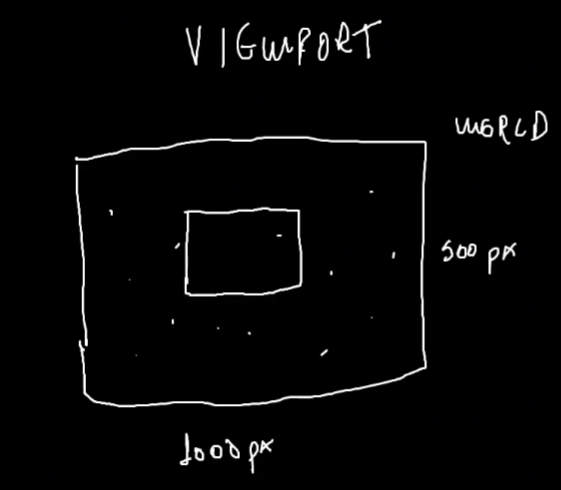 VIEWPORT
WORLD
500 px
1000 px